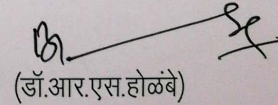 (डॉ.आर.एस.होळंबे)